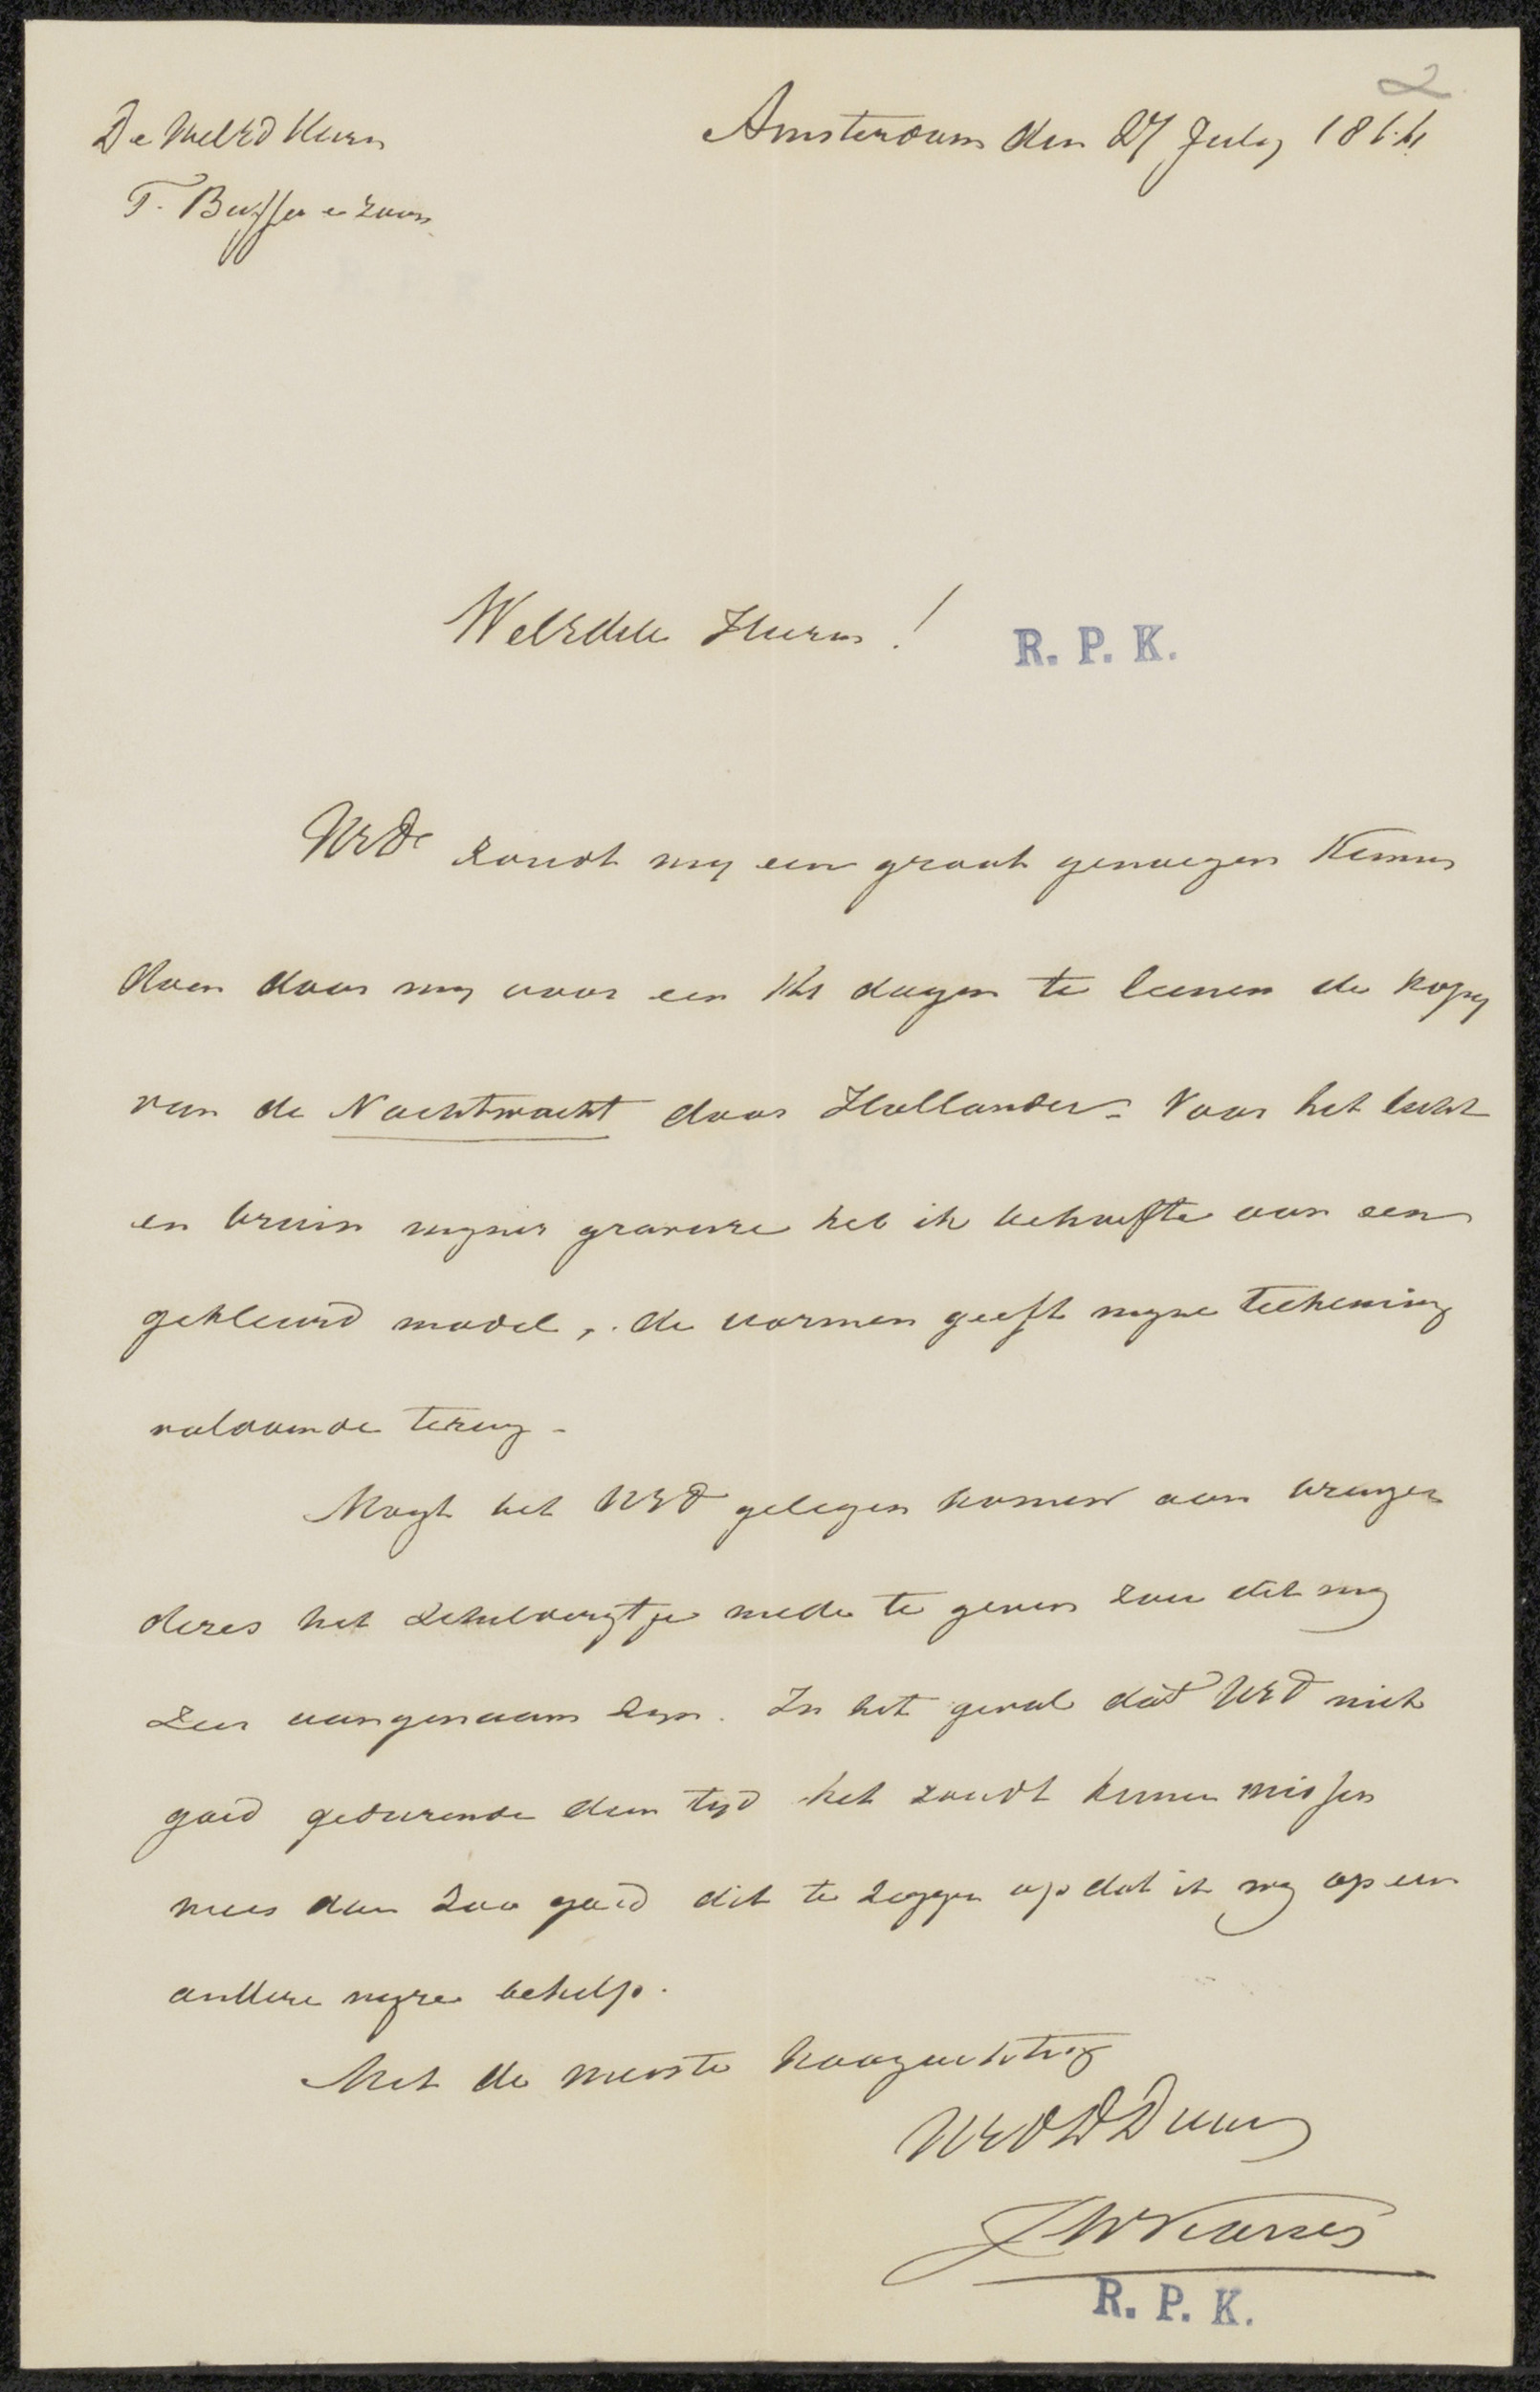 2
De WelEd Heeren
F. Buffa en Zoonen
Amsterdam den 27 July 186
WelEdele Heeren!
R. P. K.
UEd zoudt my een groot genoegen kunnen
doen door my voor een dagen te leenen de kopy
van de Nachtwacht door Hollander. Voor het licht
en bruin myner gravure heb ik behoefte aan een
gekleurd model, de vormen geeft myne teekening
voldoende terug.
Mogt het UEd gelegen komen aan brenger
dezes het schilderytje mede te geven zou dit my
zeer aangenaam zyn. In het geval dat UEd niet
goed gedurende dien tyd het zoudt kunnen missen
wees dan zoo goed dit te zeggen opdat ik my op een
andere wyze behelp.
Met de meeste hoogachting
UEdDDienaar
JWKaiser
R. P. K.